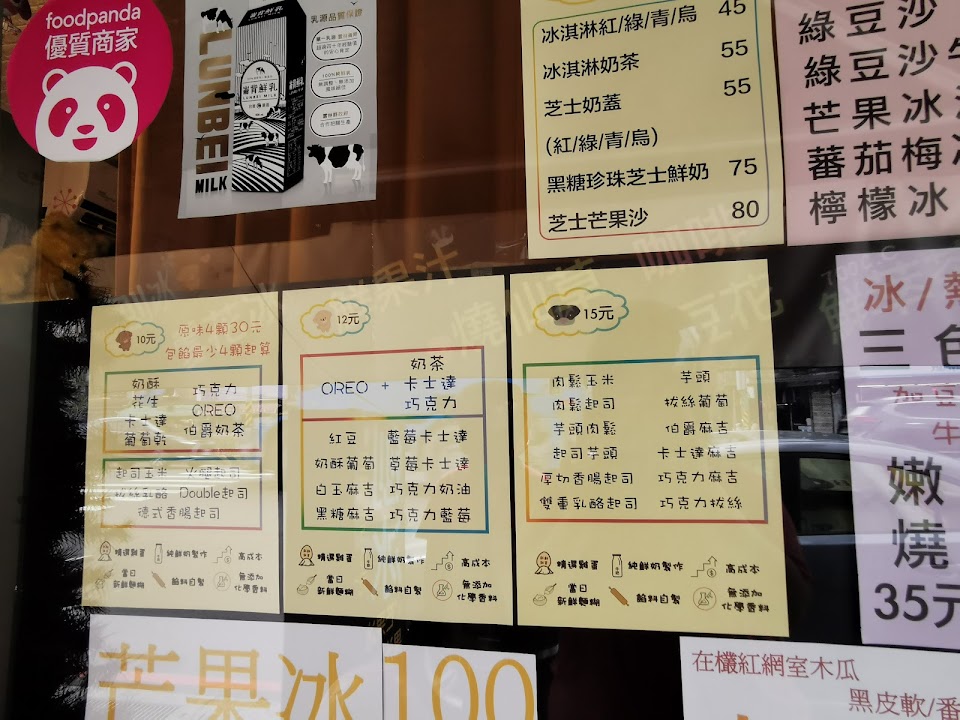 foodpanda
優質商家
LUNBEI
MILK
乳源品質保證
100%
LUNBEI MILK
冰淇淋紅/綠/青/烏 45
冰淇淋奶茶 55
芝士奶蓋 55
(紅/綠/青/烏)
黑糖珍珠芝士鮮奶 75
芝士芒果沙 80
綠豆沙
綠豆沙牛
芒果冰
蕃茄梅冰
檸檬冰
10元
原味4顆30元
包餡最少4顆起算
奶酥 巧克力
花生 OREO
卡士達 伯爵奶茶
葡萄乾
起司玉米 火腿起司
拔絲乳酪 Double起司
德式香腸起司
精選雞蛋 純鮮奶製作 高成本
當日新鮮麵糊 餡料自製 無添加化學香料
12元
OREO + 奶茶
卡士達
巧克力
紅豆 藍莓卡士達
奶酥葡萄 草莓卡士達
白玉麻吉 巧克力奶油
黑糖麻吉 巧克力藍莓
精選雞蛋 純鮮奶製作 高成本
當日新鮮麵糊 餡料自製 無添加化學香料
15元
肉鬆玉米 芋頭
肉鬆起司 拔絲葡萄
芋頭肉鬆 伯爵麻吉
起司芋頭 卡士達麻吉
厚切香腸起司 巧克力麻吉
雙重乳酪起司 巧克力拔絲
精選雞蛋 純鮮奶製作 高成本
當日新鮮麵糊 餡料自製 無添加化學香料
冰/熱
三色
加豆
牛
嫩
燒
35元
芒果冰100
在欉紅網室木瓜
黑皮軟/番